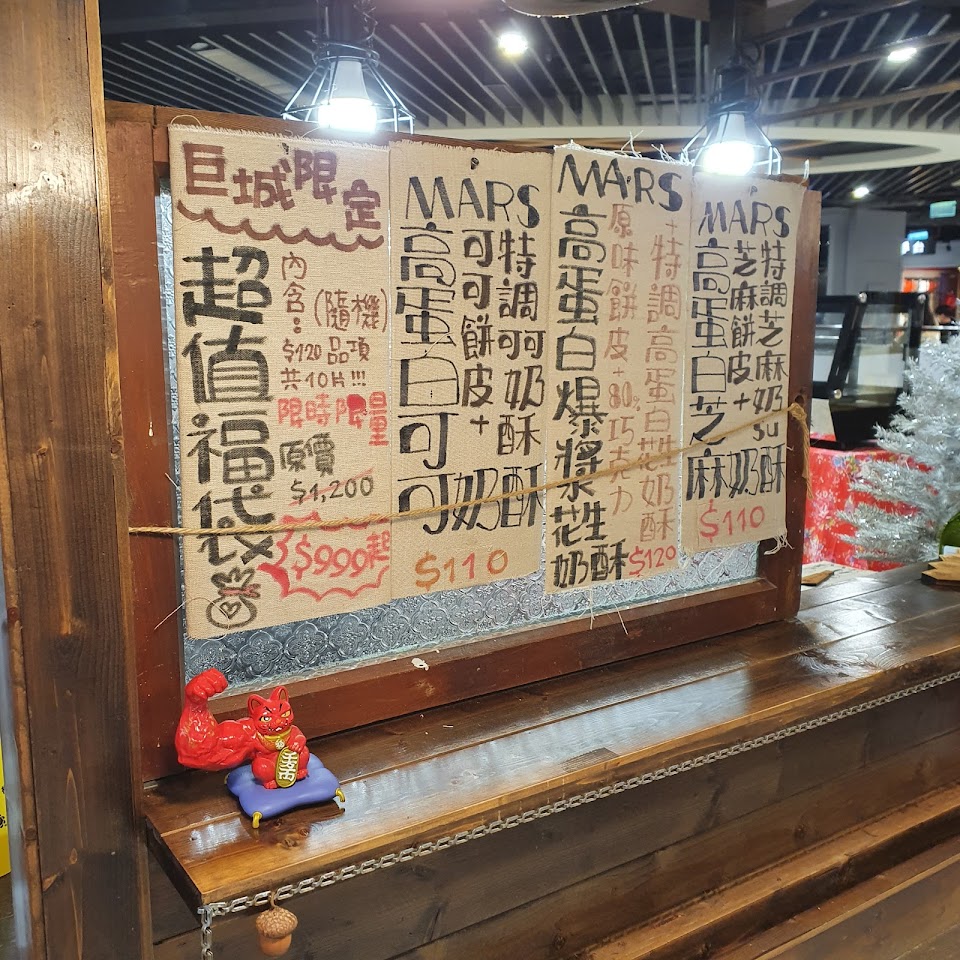 巨城限定
超值福袋
內含:(隨機)
$120品項
共10片!!!
限時限量
原價
$1,200
$999起
MARS
高蛋白可可奶酥
可可餅皮+
特調可可奶酥
$110
MARS
高蛋白爆漿花生奶酥
原味餅皮+80%巧克力
+特調高蛋白花生奶酥
$120
MARS
高蛋白芝麻奶酥
芝麻餅皮+
特調芝麻奶su
$110